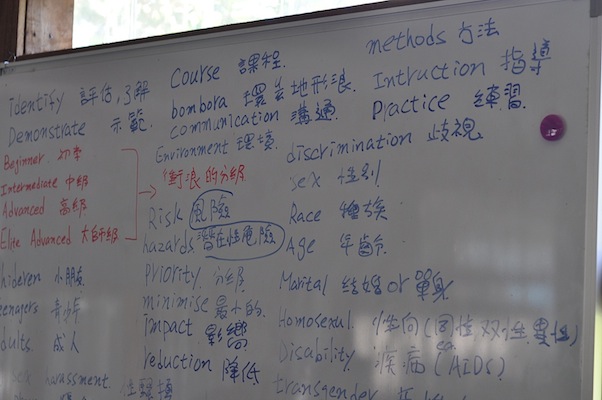 Identify 評估,了解
Demonstrate 示範
Beginner 初季
Intermediate 中級
Advanced 高級
Elite Advanced 大師級
hideren 小朋友
eenagers 青少年
dults 成人
harassment. 性騷擾
Course 課程.
bombora 環 地形浪.
communication 溝通.
Environment 環境.
衝浪的分級
Risk 風險
hazards 潛在性危險
Priority. 分級
minimise 最小的.
impact 影響
reduction 降低
methods 方法
Intruction 指導
Practice 練習.
discrimination 歧視
sex 性別
Race 種族
Age 年齡
Marital 結婚 or 單身
Homosexul. 性向(同性,双性,異性)
Disability. 疾病(AIDs)
transgender